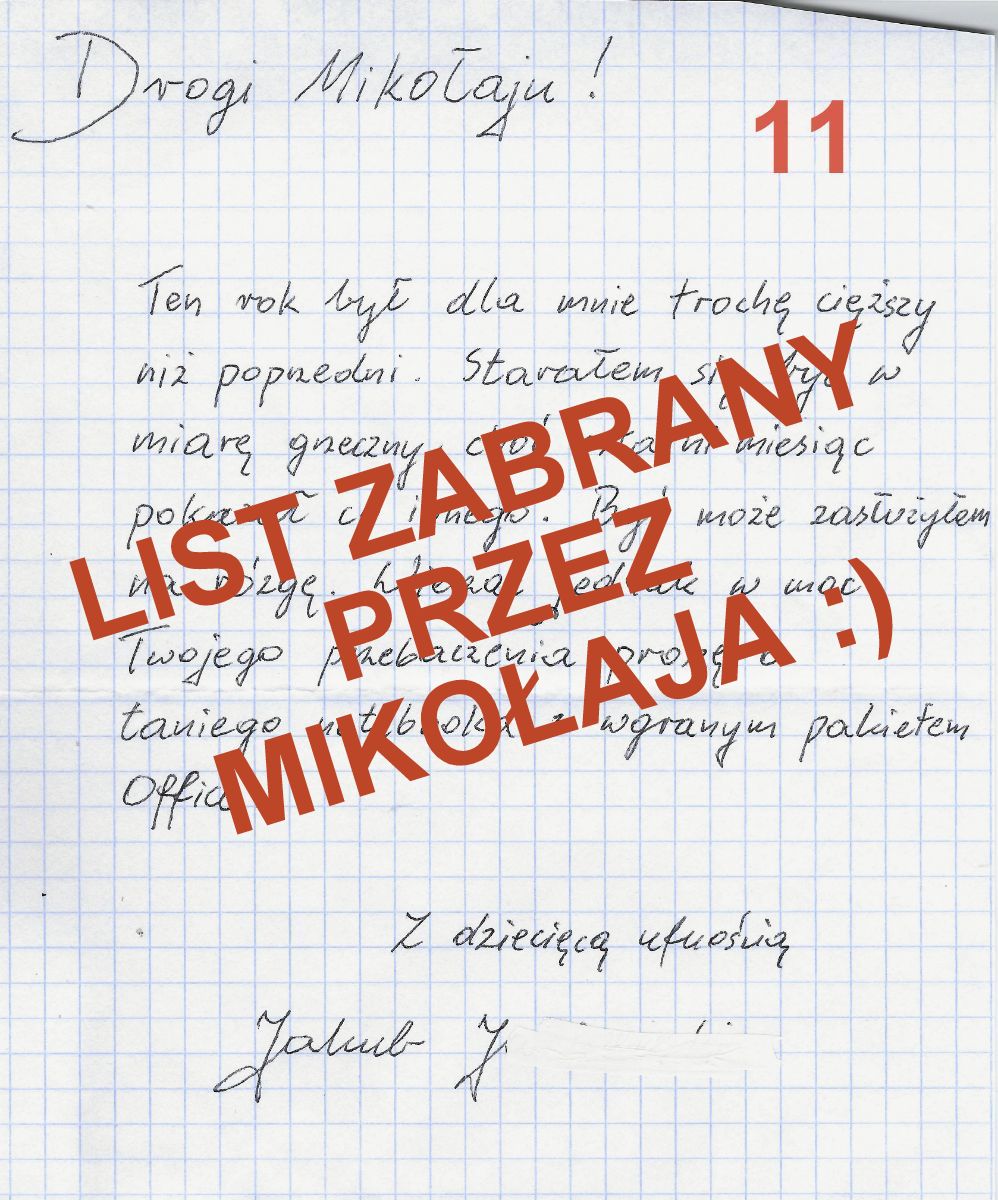 Drogi Mikołaju!
11
Ten rok był dla mnie trochę cięższy
niż poprzedni. Starałem się być w
miarę grzeczny, choć ostatni miesiąc
pokazał co innego. Być może zasłużyłem
na rózgę. Wierząc jednak w moc
Twojego przebaczenia proszę o
taniego notebooka z wgranym pakietem
Office
LIST ZABRANY
PRZEZ
MIKOŁAJA :)
Z dziecięcą ufnością
Jakub J.